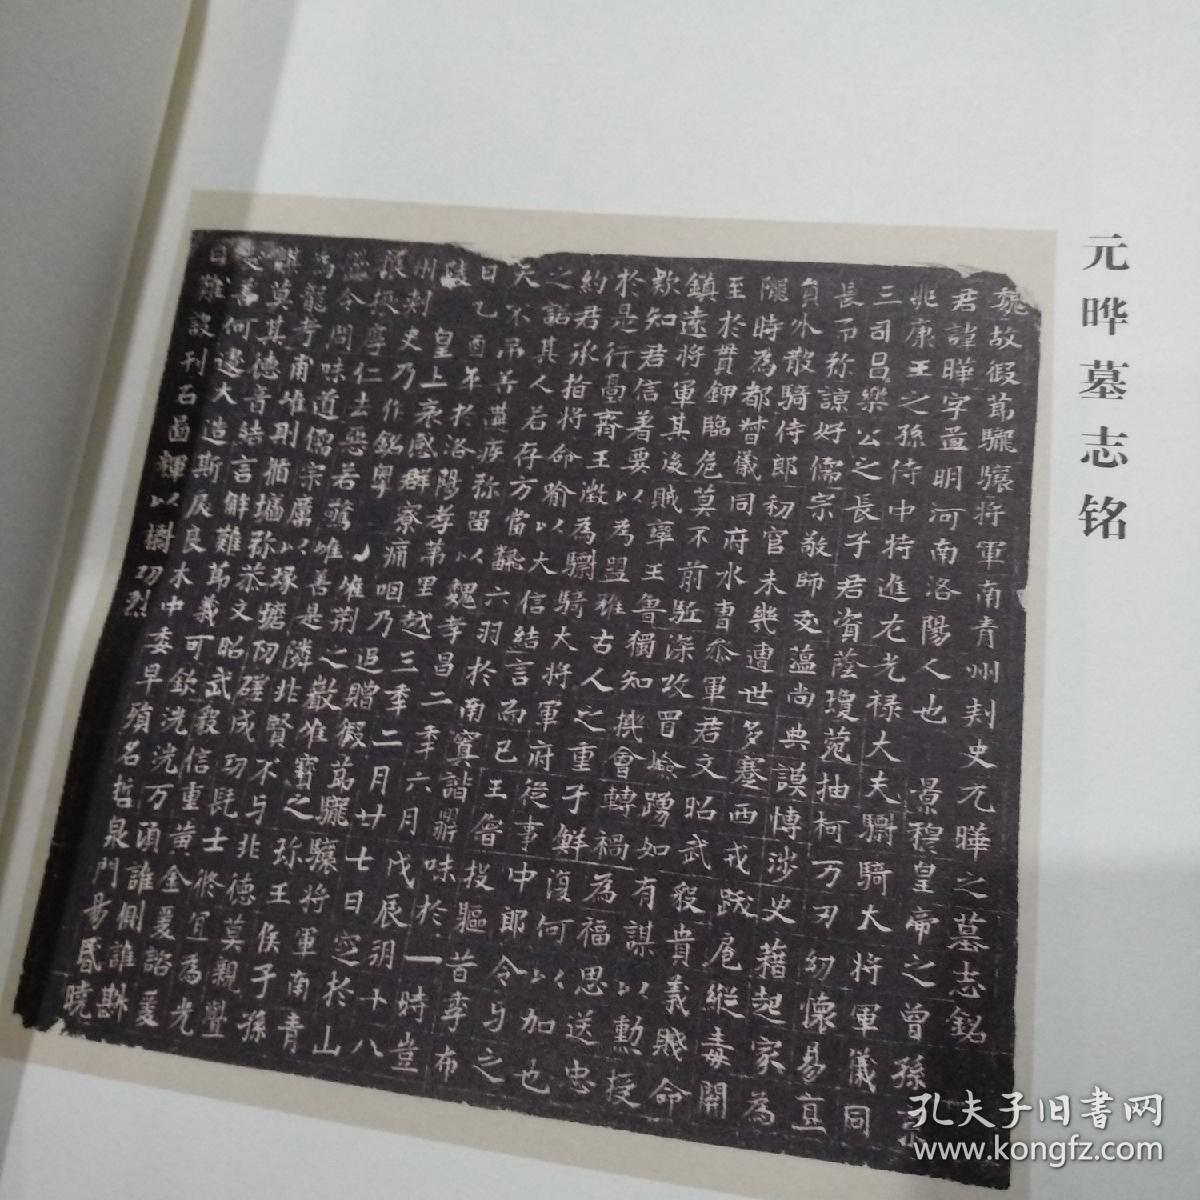 元晔墓志铭
魏故假節驪驤將軍南青州刺史元曄之墓志銘
君諱曄字並明河南洛陽人也 景穆皇帝之曾孫
兆康王之孫侍中特進左光祿大夫驃騎大將軍儀同
三司昌樂公之長子君資蔭瓊菀抽柯万刃幼懷易直
長而弥諒好儒宗敬師友蘊尚典謨博涉史藉起家為
員外散騎侍郎初官未幾遭世多蹇西戎跋扈縱毒開
隴時為都督儀同府水曹參軍君文昭武毅貴義賤命
至於貫鉀臨危莫不前駈深攻冒嶮踴如有謀以勳授
鎮遠將軍其後賊率王魯獨知機會轉禍為福思送忠
欵知君信著要以為盟雖古人之重子鮮復何以加也
於是行臺齊王澂為驃騎大將軍府從事中郎令与之
約君承指將命喻以大信結言而已王魯投驅昔季布
之諾其人若存方當齡六羽於南冥諧鼎味於一時豈
天不吊善遘疾弥留以魏孝昌二年六月戊辰朔十八
日乙酉卒於洛陽孝弟里越三年二月廿七日窆於山
陵 皇上哀感群寮痛咽乃追贈假節驪驤將軍南青
州刺史乃作銘粤
長振摩仁去惡若驚惟荊之巖惟寶之珎王侯子孫
溫令問味道儒宗厲以是隣非賢不与非德莫親豐
為龍考甫惟則循墻弥恭文昭武毅信重黃金爰諮爰
謀莫其德音結言解難節義可欽洸洸万頃誰側誰斟
与善何邊大造斯辰良木中委早殞名哲泉門易昏曉
日難設刊石菌輝以樹功烈
孔夫子旧书网
www.kongfz.com